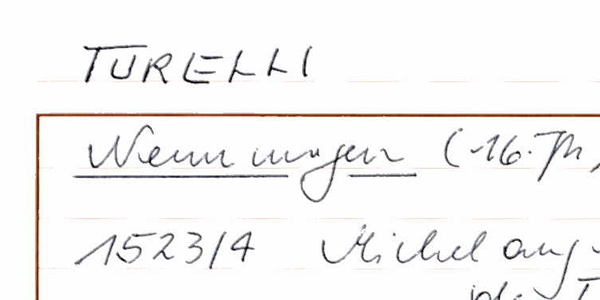 TURELLI
Nennungen (-16. Jh.
1523/4 Michelang